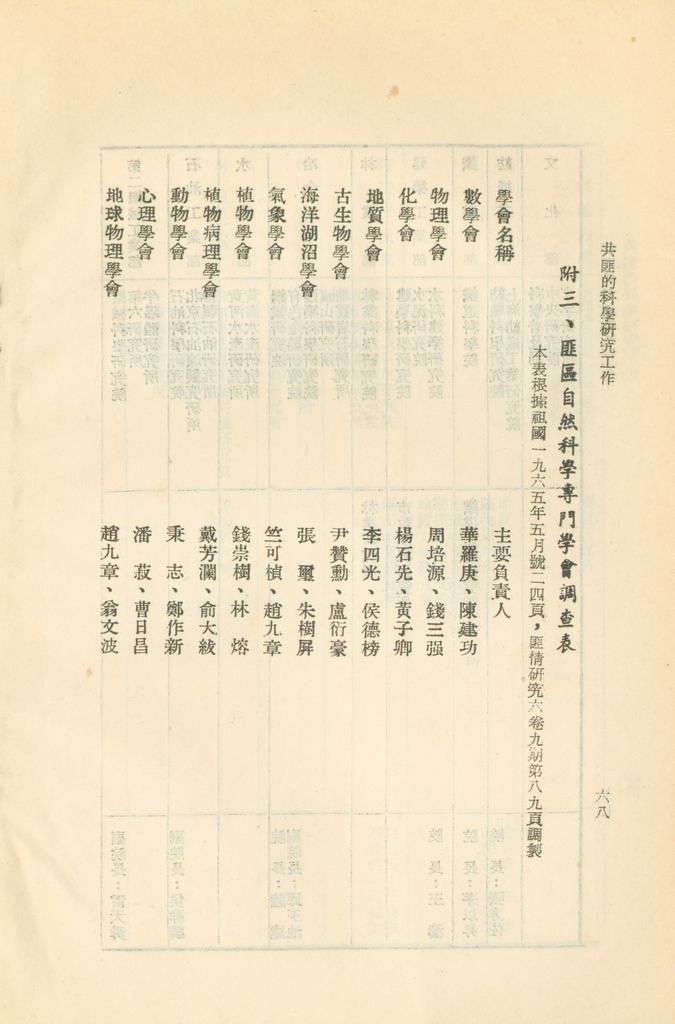 共匪的科學研究工作
六八
附三、匪區自然科學專門學會調查表
本表根據祖國一九六五年五月號二四頁，匪情研究六卷九期第八九頁調製
學會名稱　主要負責人
數學會　華羅庚、陳建功
物理學會　周培源、錢三强
化學會　楊石先、黃子卿
地質學會　李四光、侯德榜
古生物學會　尹贊勳、盧衍豪
海洋湖沼學會　張　璽、朱樹屏
氣象學會　竺可楨、趙九章
植物學會　錢崇樹、林　熔
植物病理學會　戴芳瀾、俞大紱
動物學會　秉　志、鄭作新
心理學會　潘　菽、曹日昌
地球物理學會　趙九章、翁文波